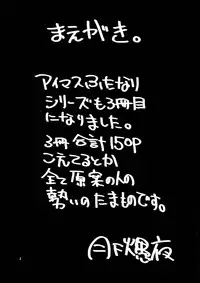 まえがき。
アイマスふたなり
シリーズも3冊目
になりました。
3冊合計150P
こえてるとか
全て原案の人の
勢いのたまものです。
月下愚夜